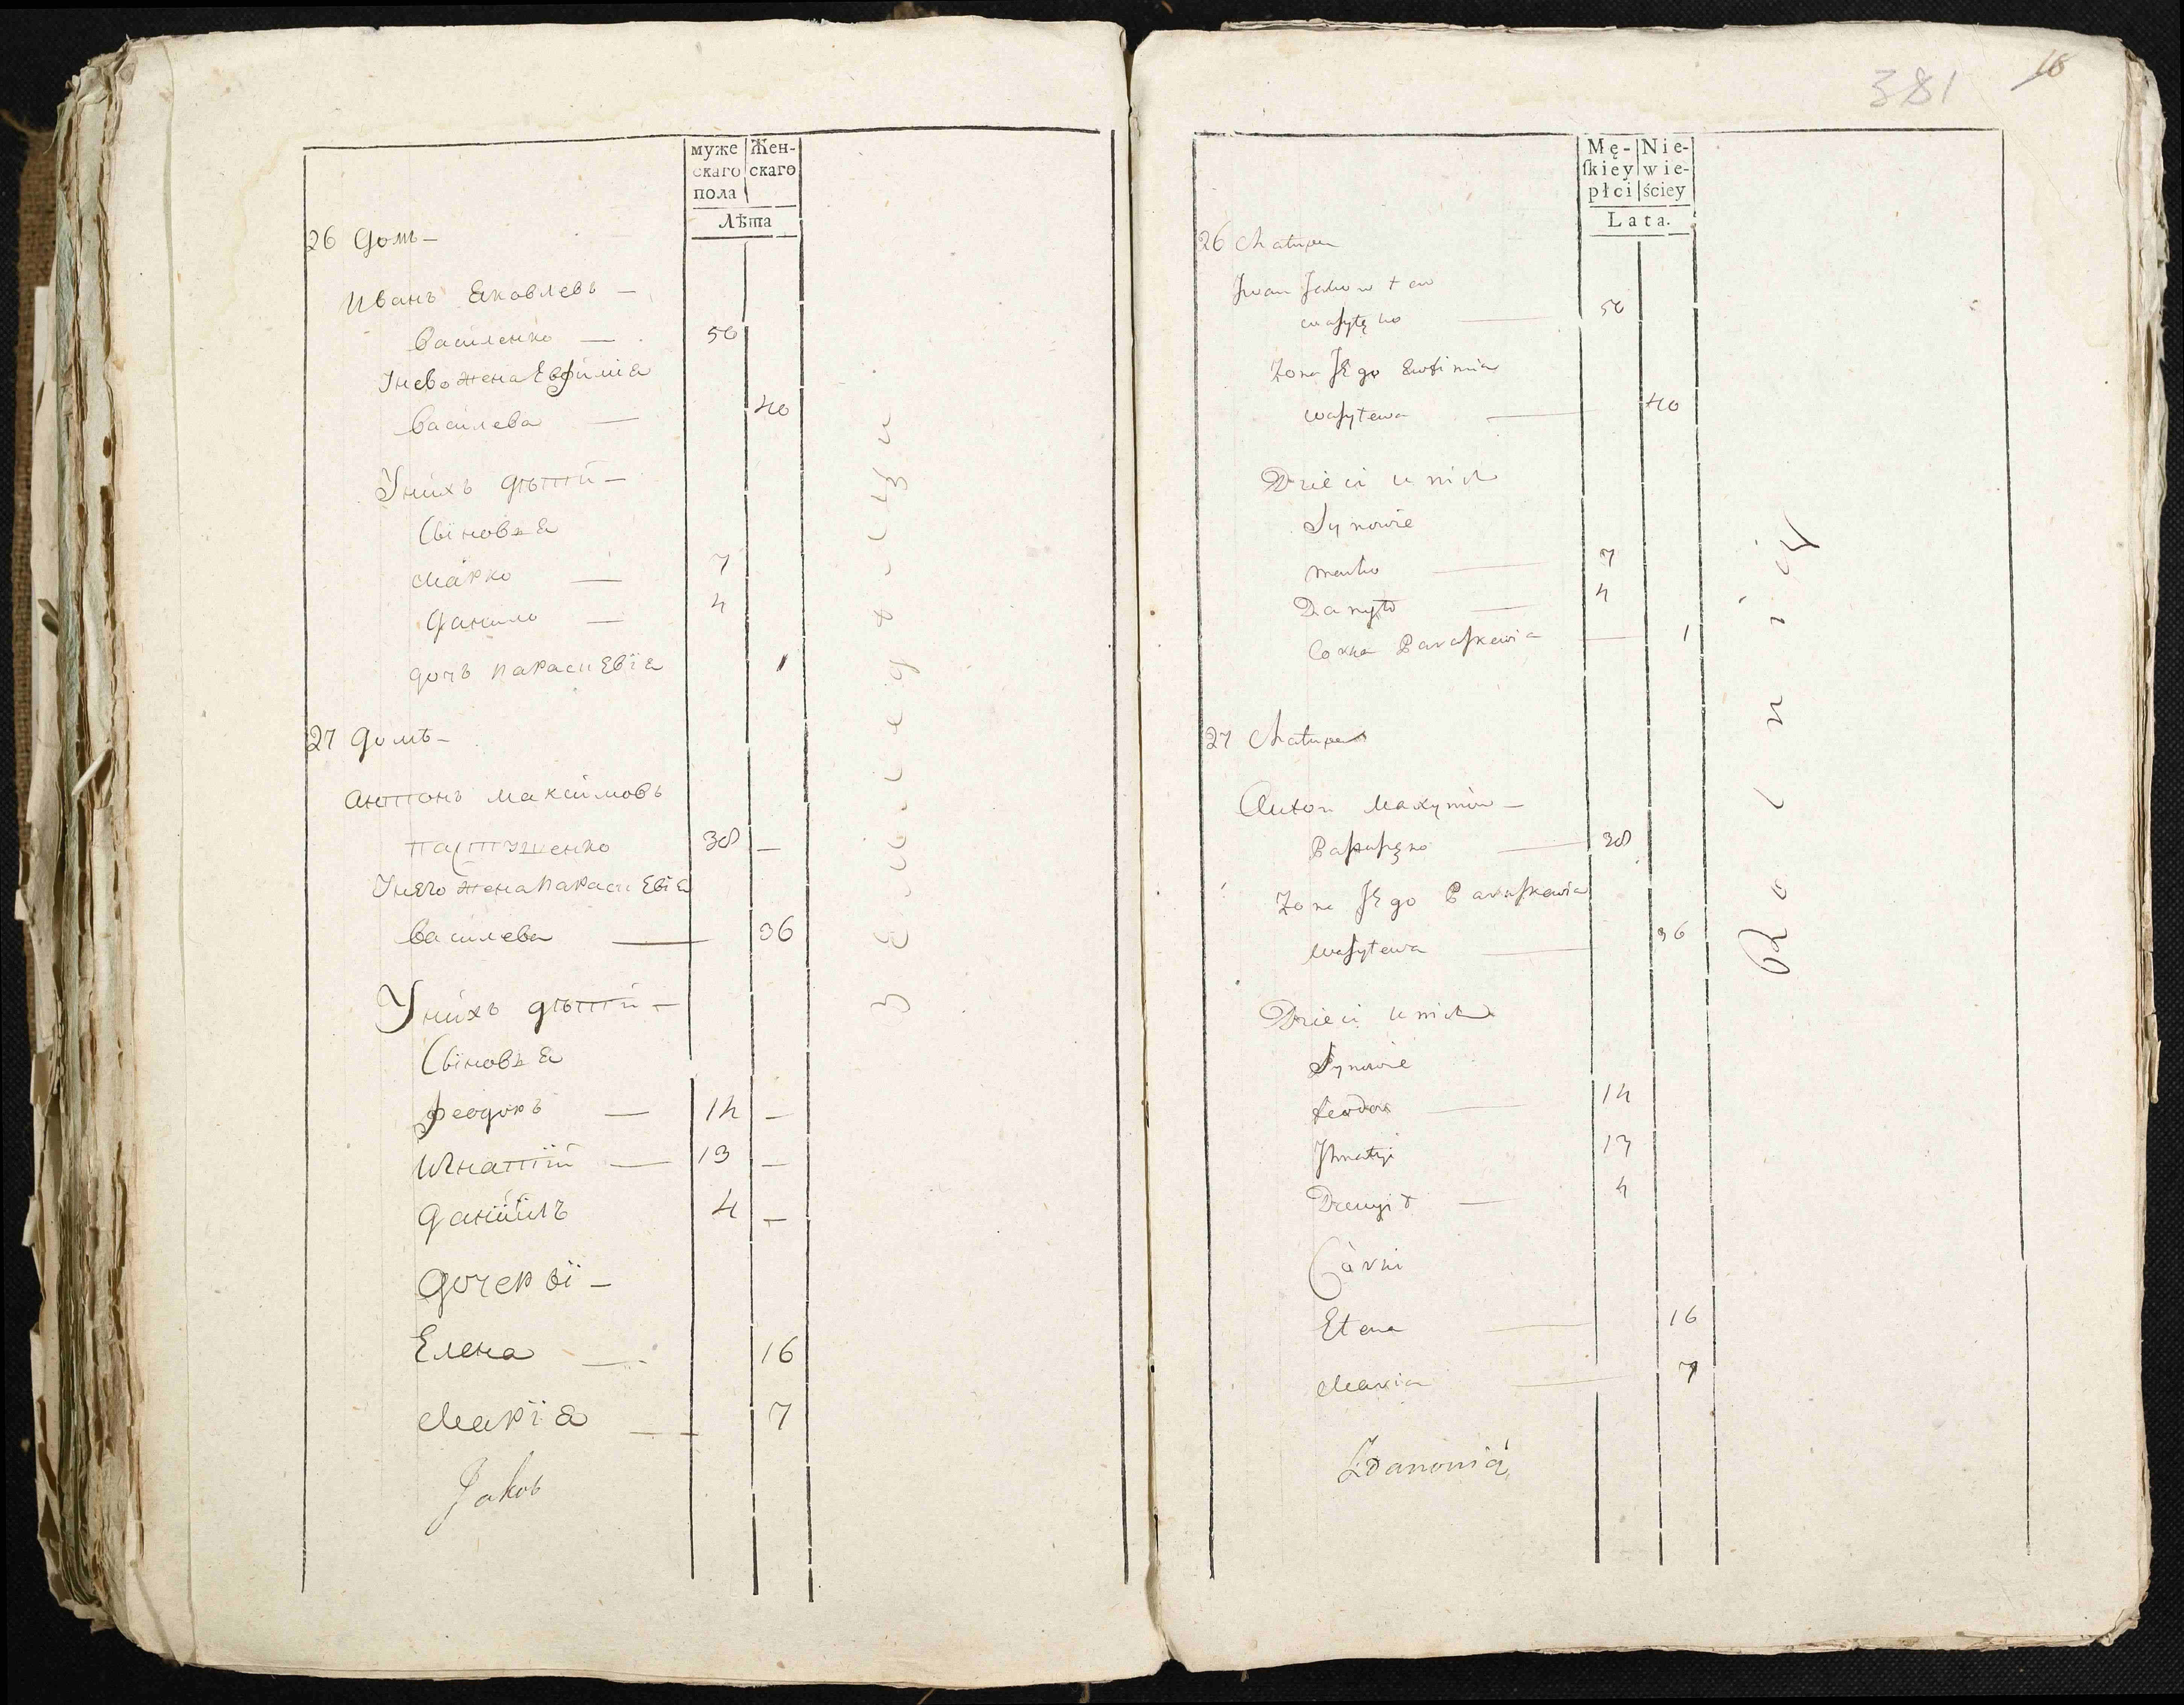 муже
скаго
пола
Жен-
скаго
Лѣта
26 Домъ –
Иванъ Яковлевъ –
Василенко — 50
У него жена Евфимія
Василева — 40
У нихъ дѣтѣй –
Сіиновья
Марко — 7
Данило — 4
дочъ Параскевія 1
27 Домъ –
Антонъ Максимовъ
Пастушенко 38 —
У него жена Параскевія
Василева — 36
У нихъ дѣтѣй –
Сіиновья
Феодоръ — 14 —
Игнатій — 13 —
Даніилъ 4 —
Дочерьї –
Елена — 16
Марія — 7
Jakob
381
18
Mę-
ſkiey
płci
Nie-
wie-
ściey
Lata.
26 Chałupa
Iwan Jakowłew
Wasylęko — 50
Żona JEgo Ewfimia
Wasyłewa — 40
Dzieci u nich
Synowie
Marko — 7
Danyło — 4
Corka Paraskewia — 1
27 Chałupa
Anton Maxymow –
Pastuszęko — 38
Żona JEgo Paraskewia
Wasyłewa — 36
Dzieci u nich
Synowie
Feodor — 14
Ihnatyi 13
Danyił — 4
Córki
Ełena — 16
Maria — 7
Rolnicy